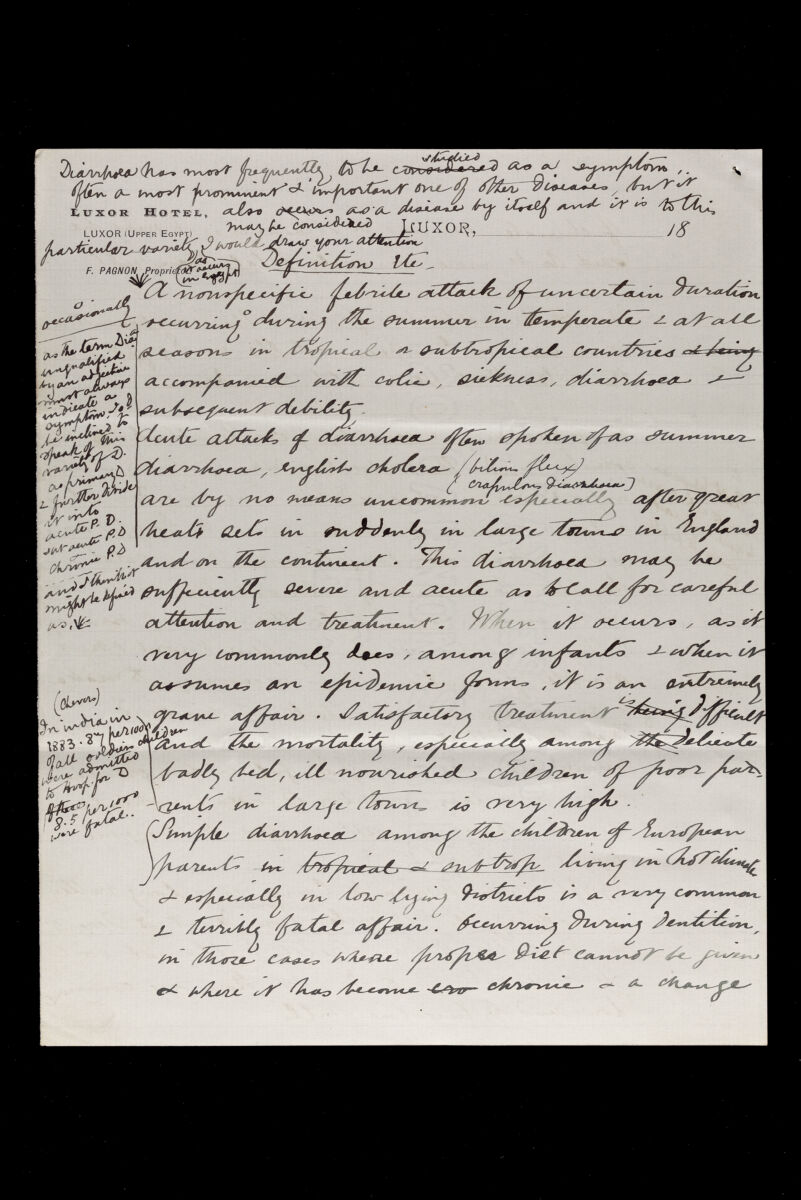 studied
Diarrhoea has most frequently to be considered as a symptom,
often a most prominent & important one of other diseases, but it
LUXOR HOTEL, also occurs as a disease by itself and it is to this
LUXOR (UPPER EGYPT) may be considered LUXOR, 18
particular variety I would draw your attention
as it occurs in Egypt
F. PAGNON, Proprietor Definition Etc
A nonspecific febrile attack of uncertain duration
occasionally
occurring during the summer in temperate & at all
seasons in tropical or subtropical countries & being
accompanied with colic, sickness, diarrhoea &
subsequent debility.
Acute attacks of diarrhoea often spoken of as summer
diarrhoea, english cholera (bilious flux)
(crapulous diarrhoea)
are by no means uncommon especially after great
heats sets in suddenly in large towns in England
and on the continent. This diarrhoea may be
sufficiently severe and acute as to call for careful
attention and treatment. When it occurs, as it
very commonly does, among infants & when it
assumes an epidemic form, it is an extremely
grave affair. Satisfactory treatment is being difficult
and the mortality, especially among the delicate
badly fed, ill nourished children of poor par-
rents in large towns is very high.
Simple diarrhoea among the children of European
parents in tropical & subtrop living in hot climate
& especially in low lying districts is a very common
& terribly fatal affair. Occurring during dentition,
in those cases where proper diet cannot be given
& where it has become chronic & a change
as the term Dia
unqualified
by an adjective
must always
indicate a
symptom. I sd
be inclined to
speak of this
variety of D.
as primary D
& further divide
it into
acute P. D.
sub acute P.D
chronic P.D
and I think it
might be defined
as.
(Chevers)
In india in
1883. 87 per 1000
of all soldiers children
were admitted
to hosp. for D
8.5 per 1000
were fatal.